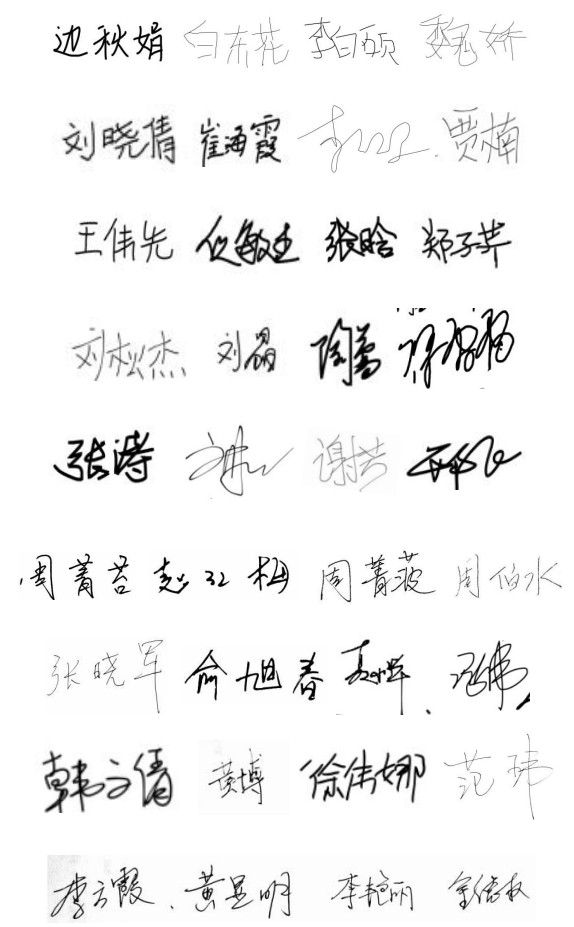 边秋娟 白东花 李白硕 魏娇
刘晓倩 崔海霞 贾楠
王伟先 张晗 郑子芹
刘松杰 刘晶 陶蕾
张涛 谢芸
周菁苔 赵红梅 周菁菠 周伯水
张晓军 俞旭春 冯伟
韩文倩 黄博 徐伟娜 范玮
李云霞 黄昱明 李艳丽